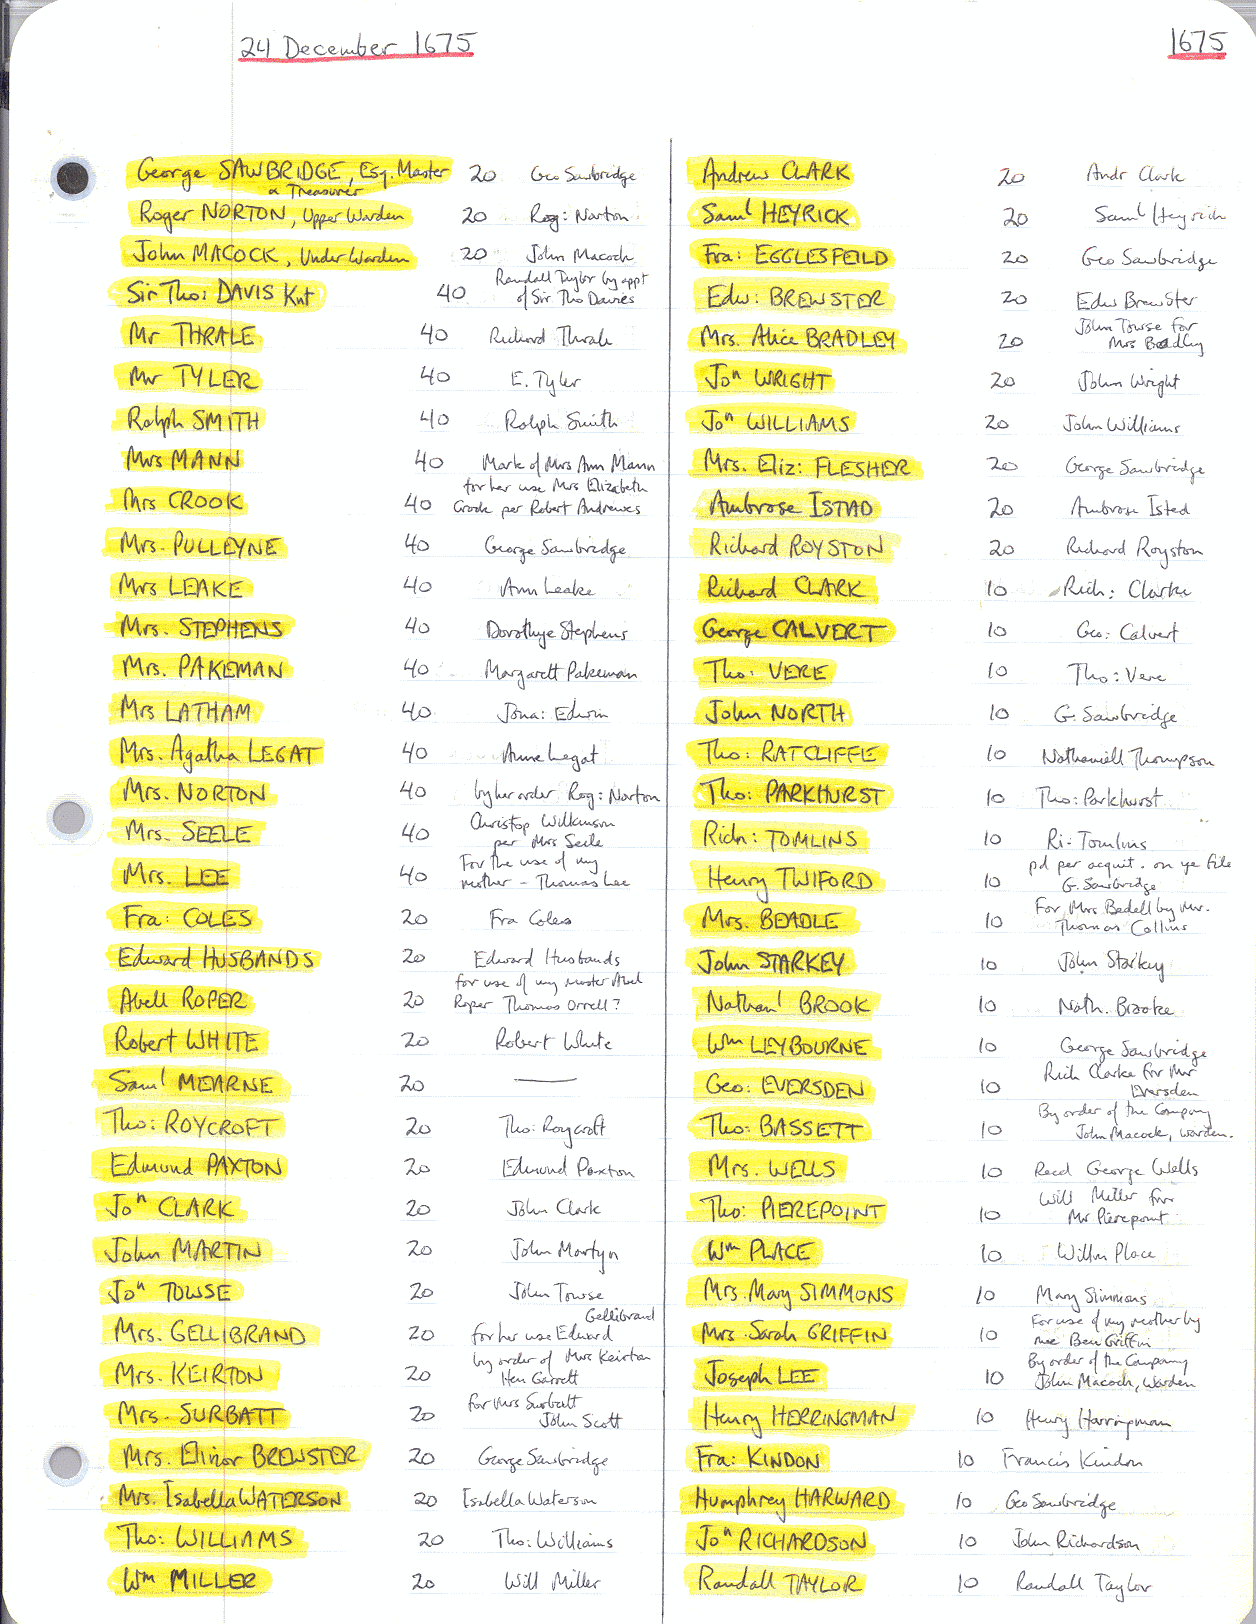 24 December 1675
1675
George SAWBRIDGE, Esq. Master 20 Geo Sawbridge
& Treasurer
Roger NORTON, Upper Warden 20 Rog: Norton
John MACOCK, Under Warden 20 John Macock
Sir Tho: DAVIS Knt 40 Randall Taylor by appt
of Sir Tho Davies
Mr THRALE 40 Richard Thrale
Mr TYLER 40 E. Tyler
Ralph SMITH 40 Ralph Smith
Mrs MANN 40 Mark of Mrs Ann Mann
Mrs CROOK 40 for her use Mrs Elizabeth
Crook per Robert Andrewes
Mrs. PULLEYNE 40 George Sawbridge
Mrs LEAKE 40 Ann Leake
Mrs. STEPHENS 40 Dorothye Stephens
Mrs. PAKEMAN 40 Margarett Pakeman
Mrs LATHAM 40 Jona: Edwin
Mrs. Agatha LEGAT 40 Anne Legat
Mrs. NORTON 40 by her order Rog: Norton
Mrs. SEELE 40 Christop Wilkinson
per Mrs Seile
Mrs. LEE 40 For the use of my
mother - Thomas Lee
Fra: COLES 20 Fra Coles
Edward HUSBANDS 20 Edward Husbands
Abell ROPER 20 for use of my master Abel
Roper Thomas Orrell?
Robert WHITE 20 Robert White
Saml MEARNE 20 —
Tho: ROYCROFT 20 Tho: Roycroft
Edmund PAXTON 20 Edmund Paxton
Jon CLARK 20 John Clark
John MARTIN 20 John Martyn
Jon TOWSE 20 John Towse
Mrs. GELLIBRAND 20 for her use Edward Gellibrand
Mrs. KEIRTON 20 by order of Mrs Keirton
Hen Garrett
Mrs. SURBATT 20 for Mrs Surbatt
John Scott
Mrs. Elinor BREWSTER 20 George Sawbridge
Mrs. Isabella WATERSON 20 Isabella Waterson
Tho: WILLIAMS 20 Tho: Williams
Wm MILLER 20 Will Miller
Andrew CLARK 20 Andr Clark
Saml HEYRICK 20 Saml Heyrick
Fra: EGGLESFEILD 20 Geo Sawbridge
Edw: BREWSTER 20 Edw Brewster
Mrs. Alice BRADLEY 20 John Towse for
Mrs Bradley
Jon WRIGHT 20 John Wright
Jon WILLIAMS 20 John Williams
Mrs. Eliz: FLESHER 20 George Sawbridge
Ambrose ISTAD 20 Ambrose Isted
Richard ROYSTON 20 Richard Royston
Richard CLARK 10 Rich: Clarke
George CALVERT 10 Geo: Calvert
Tho: VERE 10 Tho: Vere
John NORTH 10 G. Sawbridge
Tho: RATCLIFFE 10 Nathaniell Thompson
Tho: PARKHURST 10 Tho: Parkhurst
Rich: TOMLINS 10 Ri: Tomlins
Henry TWIFORD 10 pd per acquit. on ye file
G. Sawbridge
Mrs. BEADLE 10 For Mrs Bedell by mr.
Thomas Collins
John STARKEY 10 John Starkey
Nathanl BROOK 10 Nath. Brooke
Wm LEYBOURNE 10 George Sawbridge
Geo: EVERSDEN 10 Rich Clarke for Mr
Eversden
Tho: BASSETT 10 By order of the Company
John Macock, warden.
Mrs. WELLS 10 Recd George Wells
Tho: PIEREPOINT 10 Will Miller for
Mr Pierepont
Wm PLACE 10 Willm Place
Mrs. Mary SIMMONS 10 Mary Simmons
Mrs. Sarah GRIFFIN 10 For use of my mother by
mee Ben Griffin
Joseph LEE 10 By order of the Company
John Macock, Warden
Henry HERRINGMAN 10 Henry Herringman
Fra: KINDON 10 Francis Kindon
Humphrey HARWARD 10 Geo Sawbridge
Jon RICHARDSON 10 John Richardson
Randall TAYLOR 10 Randall Taylor